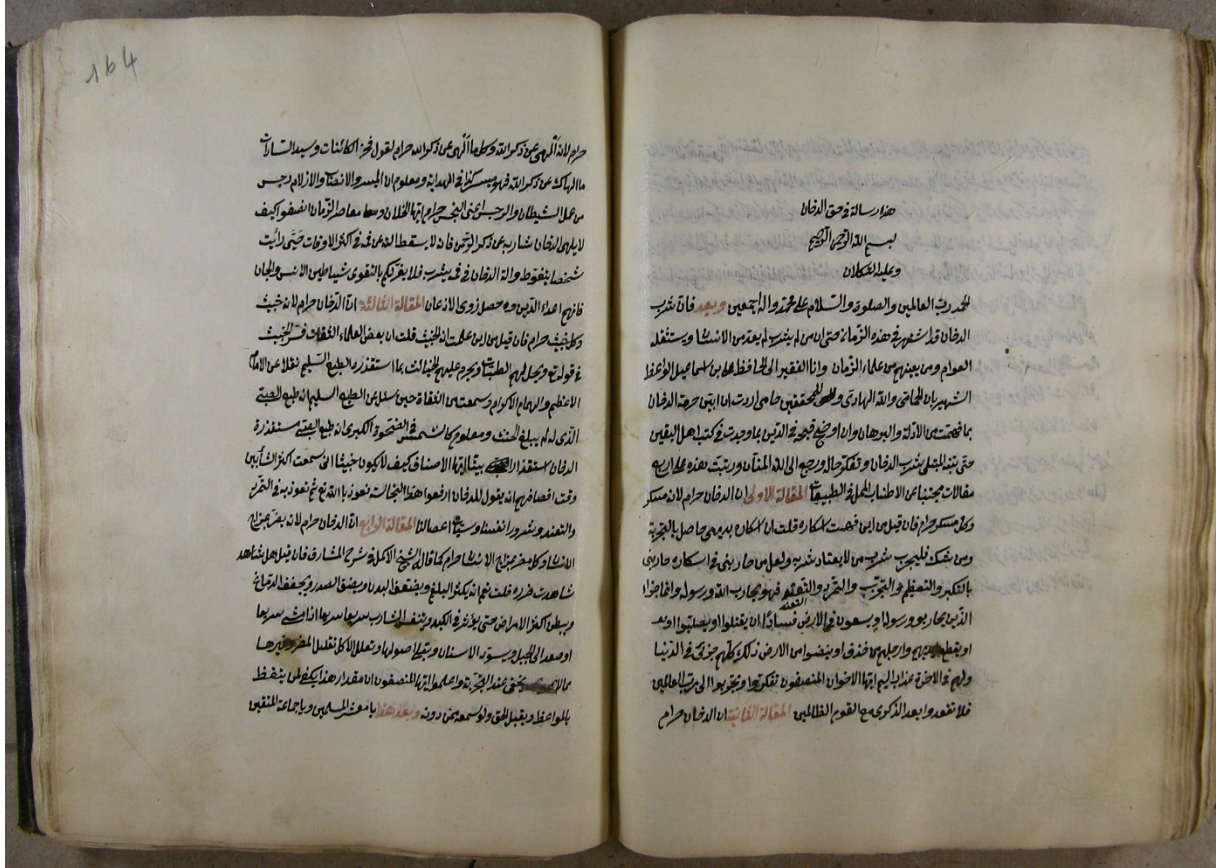 هذا رسالة في حق الدخان
بسم الله الرحمن الرحيم
وعليه التكلان
الحمد لرب العالمين والصلوة والسلام على محمد وآله اجمعين وبعد فان شرب
الدخان قد اشتهر في هذه الزمان حتى ان من لم يشرب لم يعد من الانسان ويستثقله
العوام ومن يعينهم من علماء الزمان وانا الفقير الى الحافظ على بن اسماعيل الواعظ
الشهير بان الله الهادي حامي اردت ان ابين حرمة الدخان
بما فهمت من الادلة والبرهان وان اوضح قبحه في الدين بما وجدت في كتب اهل اليقين
حتى ينتبه المبتلى بشرب الدخان وتفكر حاله ورجع الى الله المنان ورتبت هذه على اربع
مقالات مجتنبا عن الاطناب الممل في الطبيعات المقالة الاولى ان الدخان حرام لانه مسكر
وكل مسكر حرام فان قيل من اين فهمت اسكاره قلت ان اسكاره بديهي حاصل بالتجربة
ومن شك فليجرب شرب من لا يعتاد شربه ولعل من حاربني في اسكاره حاربني
بالتكبر والتعظم والتجرب والتمرد والتعند فهو يحارب الله ورسوله وانما جزاء
الذين يحاربو ورسوله ويسعون في الارض فسادا ان يقتلوا او يصلبوا او
او يقطع ايديهم وارجلهم من خلاف او ينفوا من الارض ذلك لهم خزى في الدنيا
ولهم في الاخرة عذاب اليم ايها الاخوان المنصفون تفكروا وتوبوا الى رب العالمين
فلا تقعدوا بعد الذكرى مع القوم الظالمين المقالة الثانية ان الدخان حرام
164
حرام لانه الهى عن ذكر الله وكل ما الهى عن ذكر الله حرام لقول فخر الكائنات وسيد السادات
ما الهاك عن ذكر الله فهو ميسر كذا في الهداية ومعلوم ان الميسر والانصاب والازلام رجس
من عمل الشيطان والرجس بمعنى النجس حرام ايها الخلان ويا معاصر الزمان انصفوا كيف
لا يلهى الدخان شاربه عن ذكر الرحمن فانه لا يسقط الله عن فمه في اكثر الاوقات حتى رأيت
شخصا يتغوط وآلة الدخان في فمه يشرب فلا يغرنكم بالتقوى شياطين الانس والجان
فانهم اعداء الدين وحصل ذوى الاذعان المقالة الثالثة ان الدخان حرام لانه خبيث
وكل خبيث حرام فان قيل من اين علمت ان الخبيث قلت ان بعض العلماء الثقات فسر الخبيث
في قوله تع ويحل لهم الطيبات ويحرم عليهم الخبائث بما استقذره الطبع السليم نقلا عن الامام
الاعظم والهمام الاكرم وسمعت من الثقاة حين سئل عن الطبع السليم انه طبع الصبي
الذي لم يبلغ الحنث ومعلوم كالشمس في الضحوة الكبرى ان طبع الصبي مستقذرة
الدخان استقذارا ايها الاصناف كيف لا يكون خبيثا انى سمعت اكثر الشاربين
وقت انصافهم انه يقول للدخان ارفعوا هذا النجاسة نعوذ بالله تع ثم نعوذ به في التمرد
والتعند وشرور انفسنا وسيئات اعمالنا المقالة الرابع ان الدخان حرام لانه يضر بمزاج
الانسان وكل مضر بمزاج الانسان حرام كما قال الشيخ الاكمل في شرح المشارق فان قيل هل شاهد
شاهدت ضرره قلت نعم انه يكثر البلغم ويضعف البدن ويضيق الصدر ويجفف الدماغ
ويبطئ اكثر الامراض حتى يؤثر في الكبد ويتنفس الشارب سريعا سريعا اذا مشى سريعا
او صعد الى الجبل ويسود الاسنان وتقبح اصولها وتعلل الاكل تقليل المفرط وغيرها
مما يخفى عند التجربة واعلموا ايها المنصفون ان مقدار هذا يكفى لمن يتعظ
بالمواعظ ويقبل الحق ولو سمعه من دونه وبعد هذا يا معشر المسلمين ويا جماعة المتقين